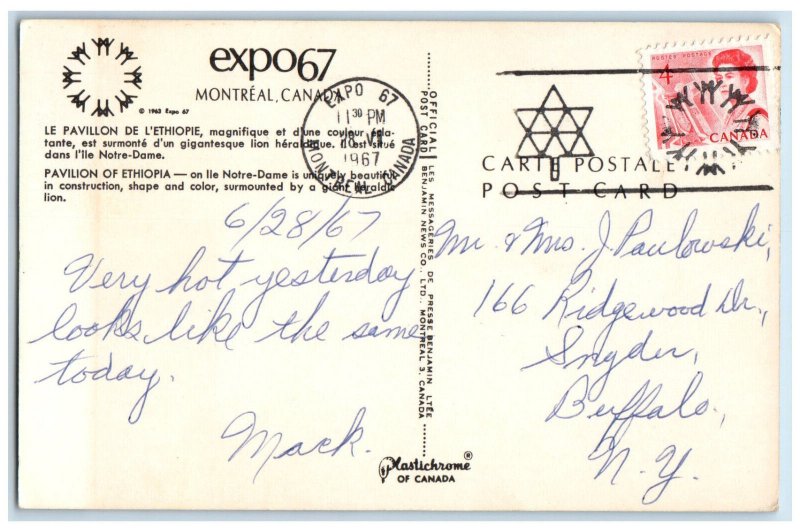 expo67
MONTRÉAL, CANADA
© 1963 Expo 67
LE PAVILLON DE L'ETHIOPIE, magnifique et d'une couleur écla-
tante, est surmonté d'un gigantesque lion héraldique. Il est situé
dans l'Ile Notre-Dame.
PAVILION OF ETHIOPIA — on Ile Notre-Dame is uniquely beautiful
in construction, shape and color, surmounted by a giant heraldic
lion.
6/28/67
Very hot yesterday
looks like the same
today.
Mack.
EXPO 67
11 30 PM
VI
1967
MONTREAL, CANADA
OFFICIAL POST CARD
LES MESSAGERIES DE PRESSE BENJAMIN LTÉE
BENJAMIN NEWS CO., LTD. MONTREAL 3, CANADA
Plastichrome®
OF CANADA
CARTE POSTALE
POST CARD
POSTES POSTAGE
4
CANADA
Mr. & Mrs J. Pawlowski,
166 Ridgewood Dr.,
Snyder,
Buffalo,
N.Y.